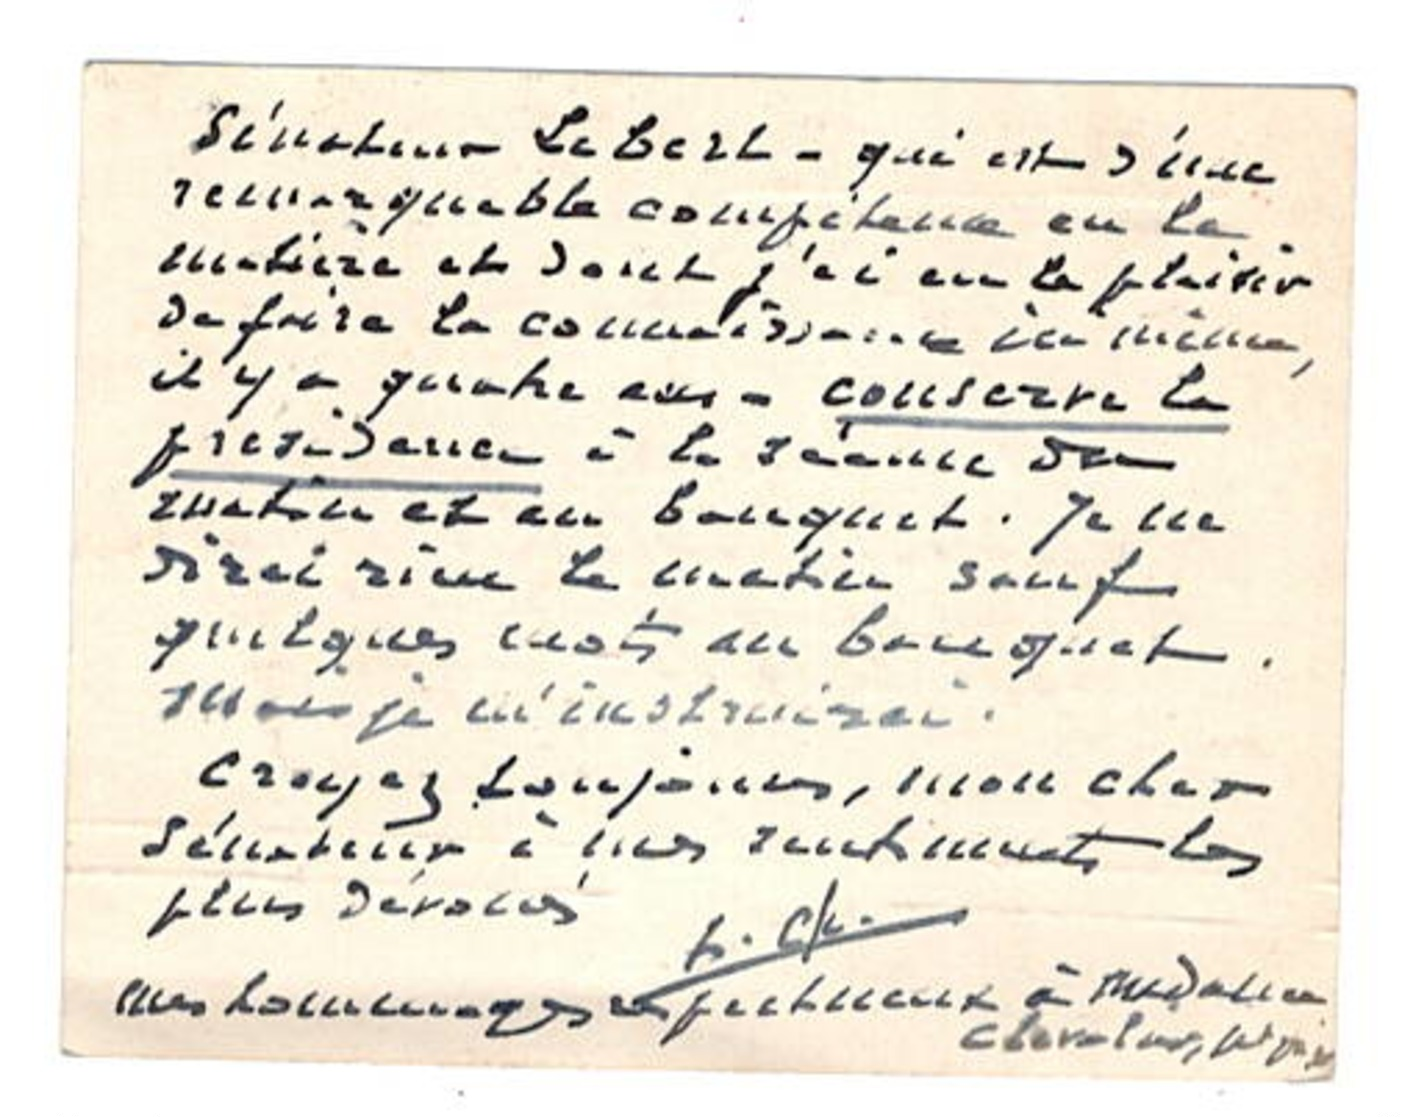 Sénateur Lebert - qui est d'une
remarquable compétence en la
matière et dont j'ai eu le plaisir
de faire la connaissance ici même,
il y a quatre ans - conserve la
présidence à la séance du
matin et au banquet. Je ne
dirai rien le matin sauf
quelques mots au banquet.
Mais je m'instruirai.
Croyez toujours, mon cher
Sénateur à mes sentiments les
plus dévoués
Mes hommages respectueux à Madame